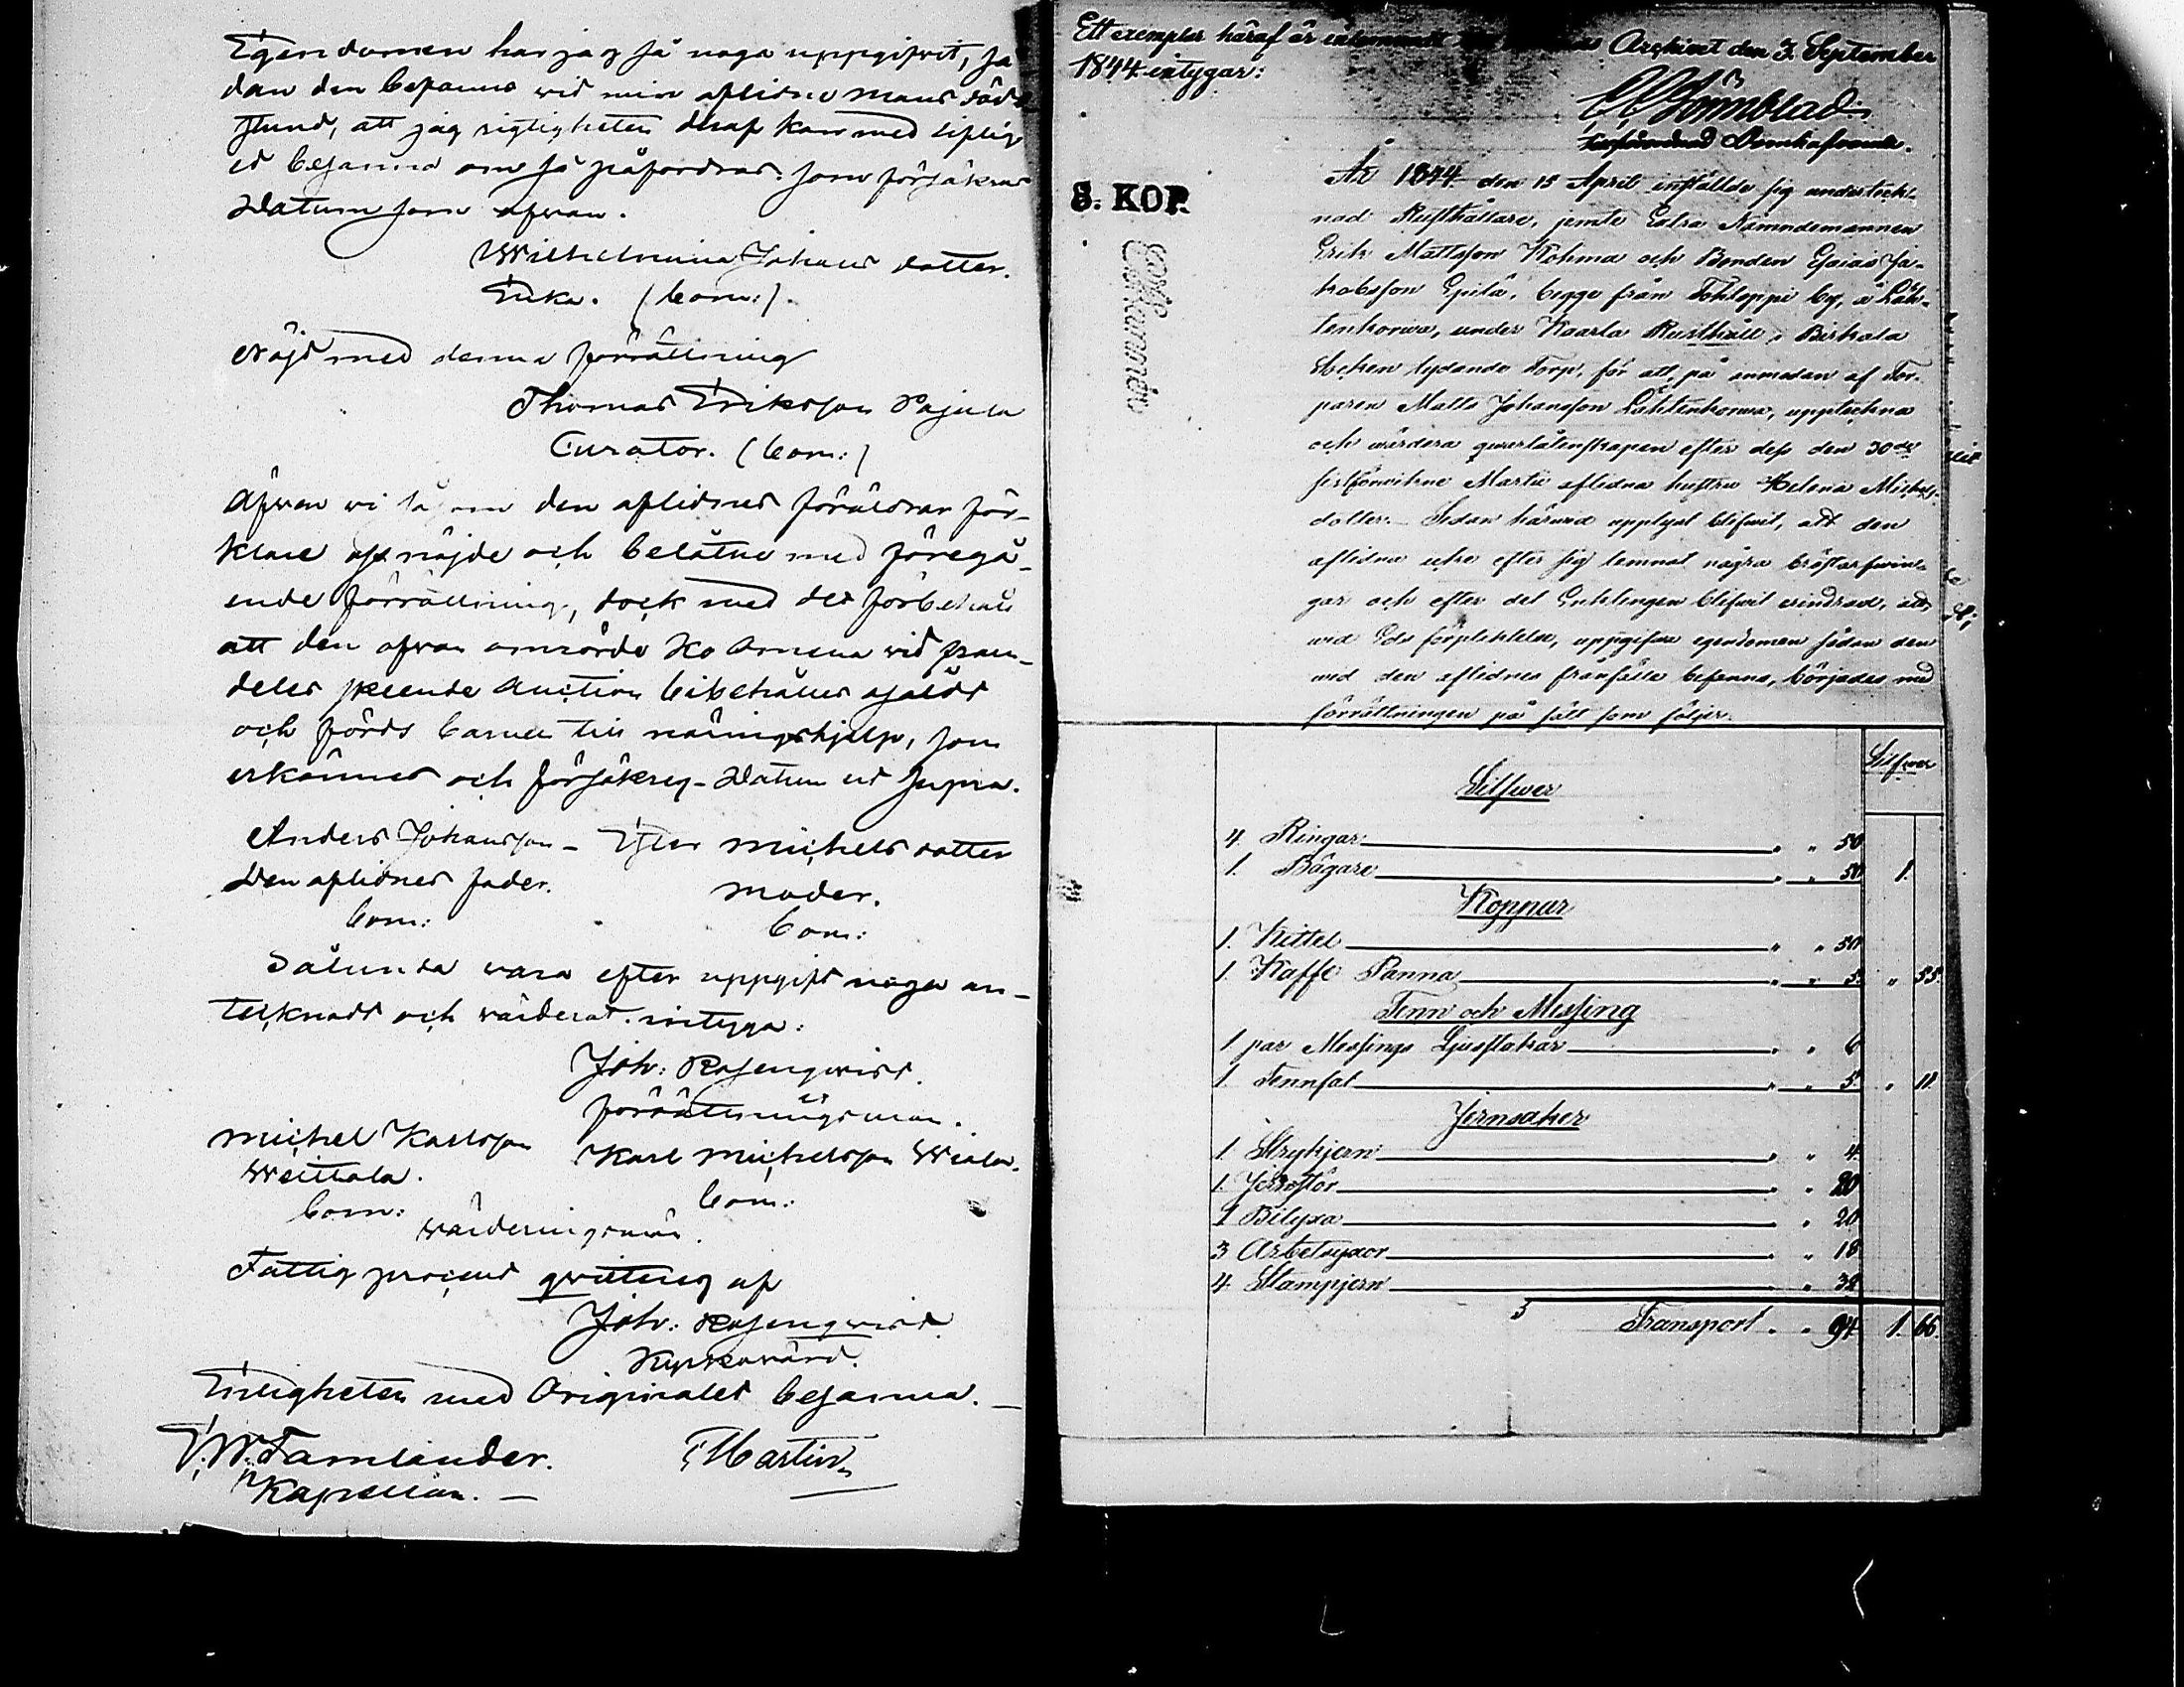 Egendomen har jag så noga uppgifvit, så
dan den befanns vid min aflidne mans döds
stund, att jag rigtigheten deraf kan med liflig
ed besanna om så påfordras. som försäkras
Datum som ofvan.
Wilhelmina Johans dotter.
Enka. (bom:).
Nöjd med denna förrättning
Thomas Eriksson Pajula
Curator. (bom:)
Äfven vi såsom den aflidnes föräldrar för-
klare oss nöjde och belåtne med föregå-
ende förrättning, dock med det förbehåll
att den ofvan omrörde Ko Omena vid fram-
deles skeende Auction bibehålles osåldt
och förds barnen till näringshjelp, som
erkännes och försäkras. Datum ut supra.
Anders Johansson - Michels dotter
Den aflidnes fader. moder.
bom: bom:
Sålunda vara efter uppgift noga an-
tecknadt och värderat. intyga:
Joh: Rosenqvist.
förrättningsman.
Michel Karlsson Karl Michelsson Wiala.
Weittala.
bom: bom:
Värderingsmän.
Fattig procent qvitteras af
Joh: Rosenqvist
Kyrkovärd.
Enligheten med Originalet besanna.
Tamlander. Martin
Kapellan.
Ett exemplar häraf är Archivet den 3. September
1844 intygar:
8. KOP.
År 1844 den 15 April inställde sig underteck-
nad Rusthållare, jemte Extra Nämndemannen
Erik Mattsson Kohma och Bonden Esaias Ja-
kobsson Epilä, begge från Tohloppi by, å Lah-
tenkorwa, under Kaarla Rusthåll i Birkala
Socken lydande Torp, för att på anmodan af Tor-
paren Matts Johansson Lahtenkorwa, uppteckna
och värdera qvarlåtenskapen efter dess den 30de
sistförvikne Martii aflidna hustru Helena Michels-
dotter. Sedan härvid upplyst blifvit, att den
aflidna icke efter sig lemnat några bröstarfwin-
gar och efter det Enklingen blifvit erindrad, att,
vid Eds förplicktelse, uppgifva egendomen sådan den
vid den aflidnes frånfälle befanns, börjades med
förrättningen på sätt som följer.
Silfwer
Silfwer
4 Ringar " " 50
1. Bägare " " 50 1.
Koppar
1. Kittel " " 50
1. Kaffe Panna " " 5. " 55.
Tenn och Messing
1 par Messings Ljusstakar " " 6
1 Tennfat " " 5. " 11.
Jernsaker
1 Strykjern " " 4.
1. Jernstör " " 20
1 Bilyxa " " 20
3 Arbetsyxor " " 18
4 Stampjern " " 32
Transport " " 94 1. 66.